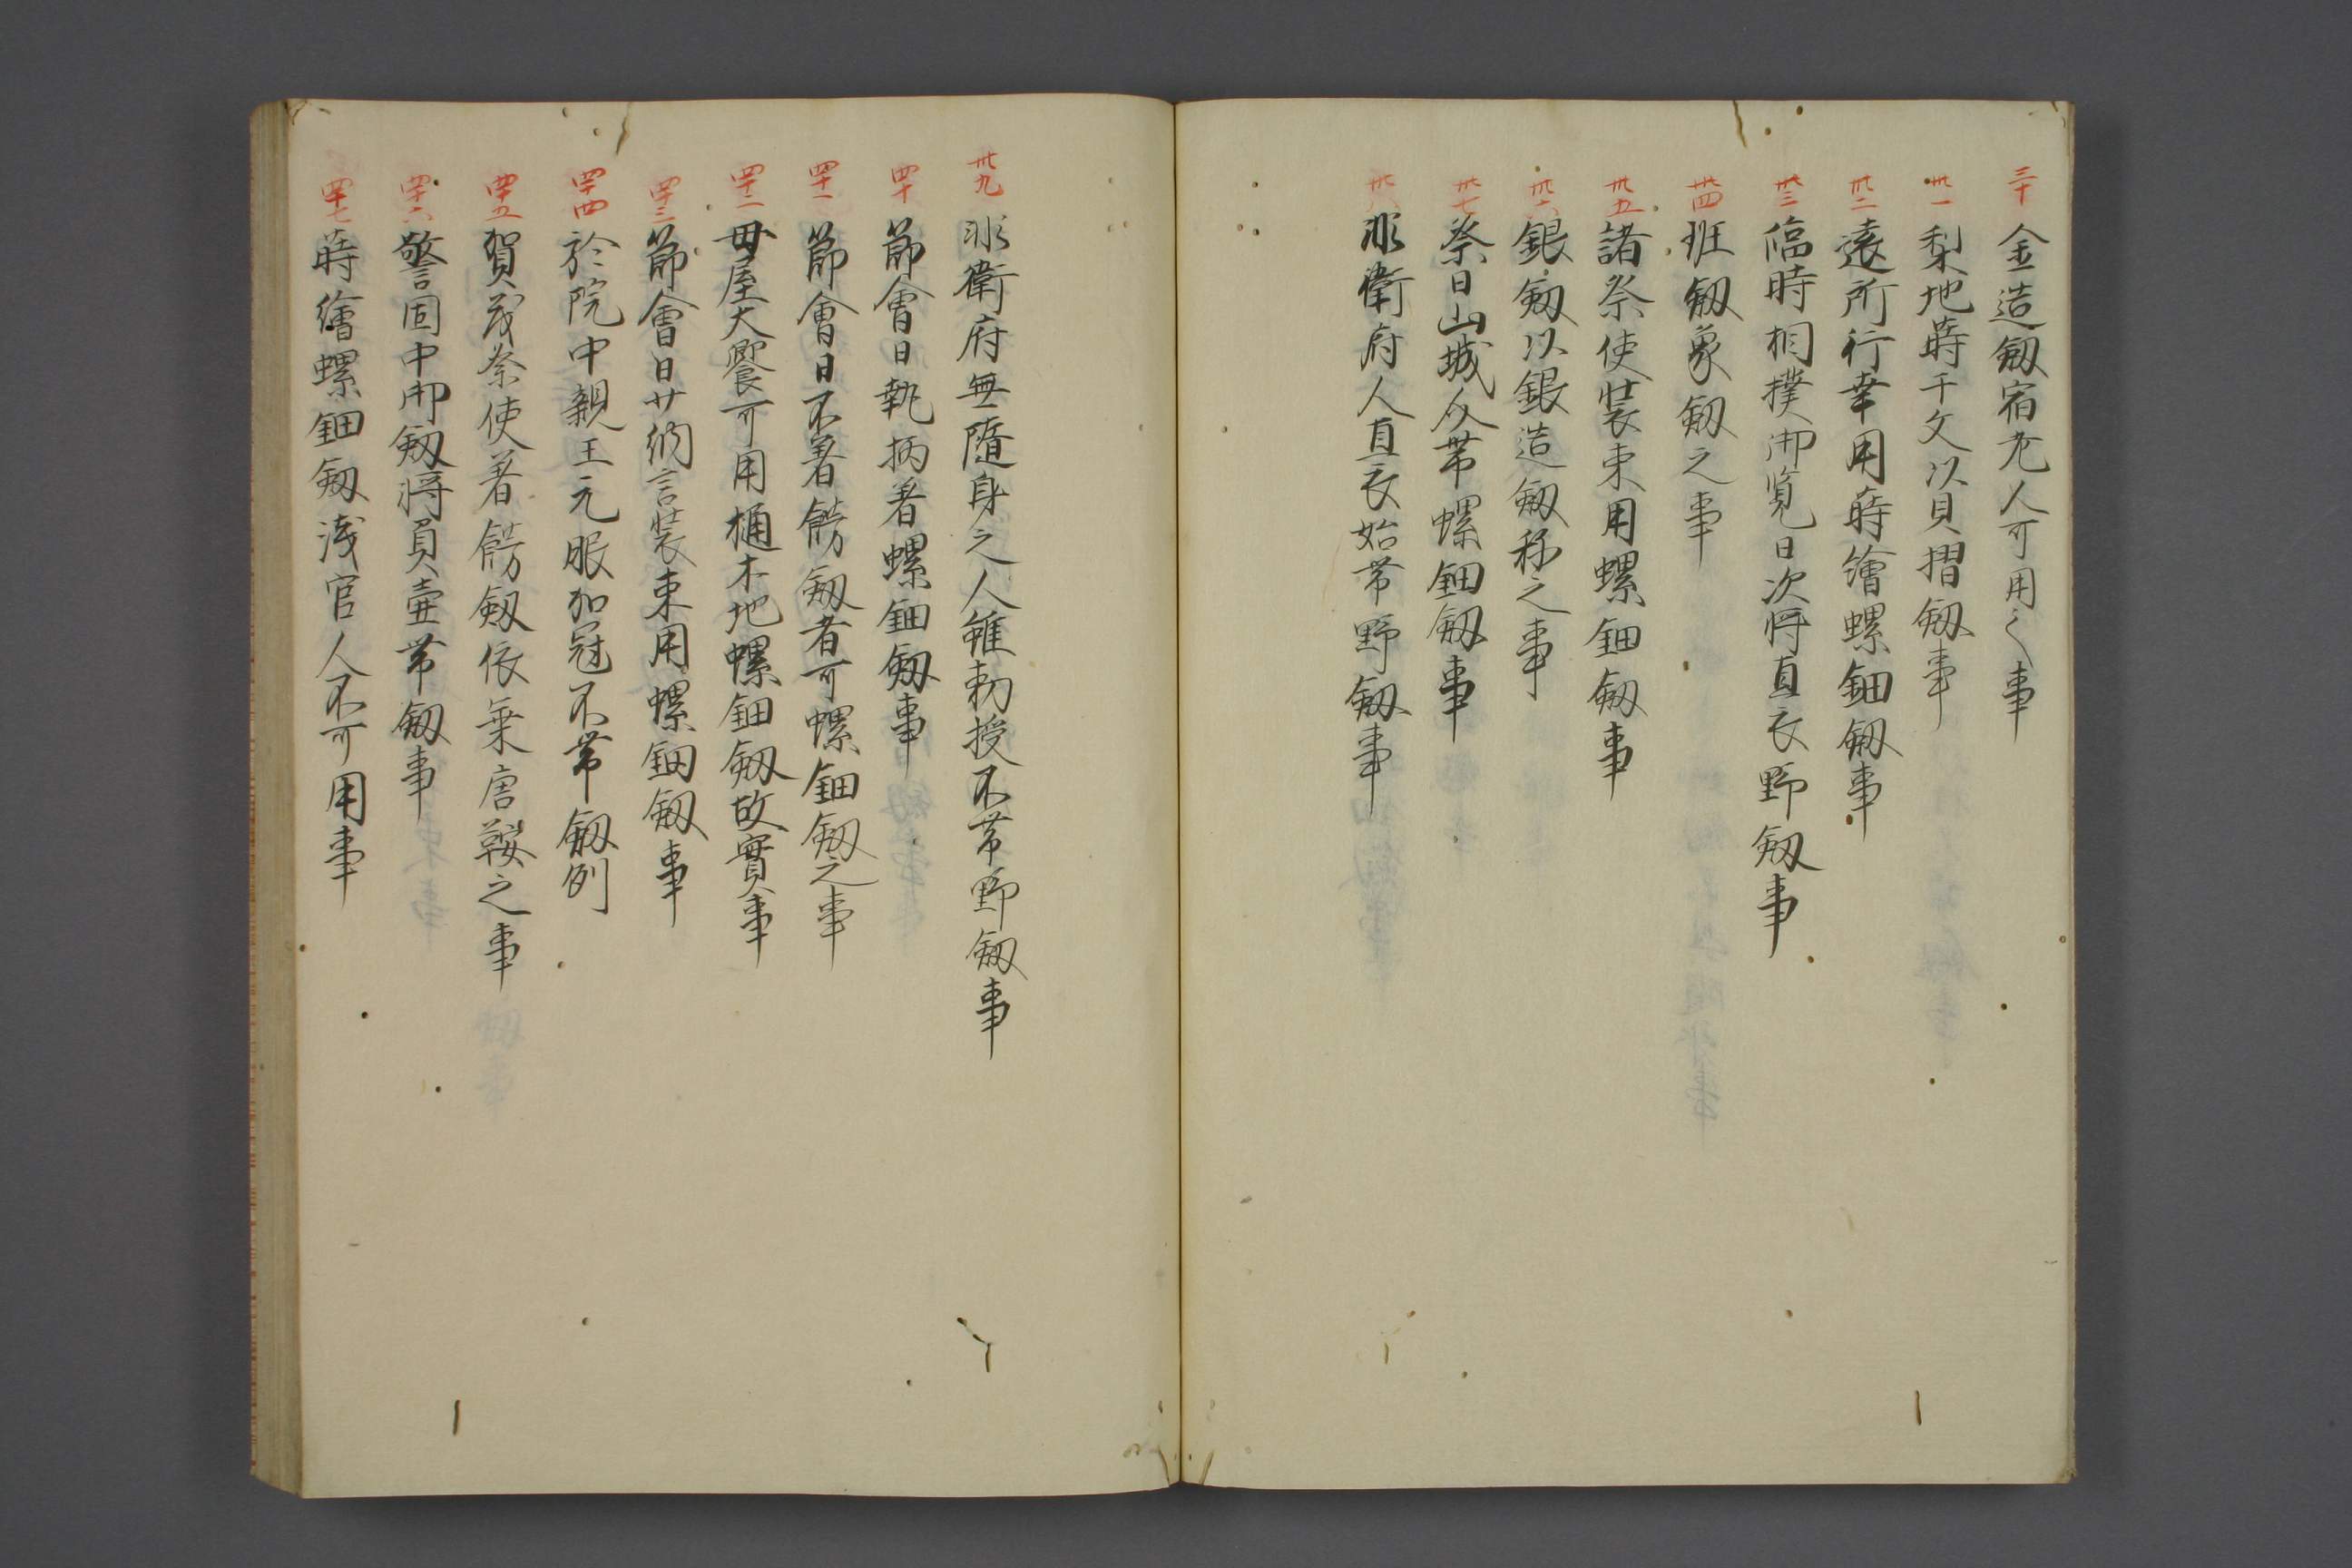 三十 金造剱宿老人可用之事
卅一 梨地蒔千文以貝摺剱事
卅二 遠所行幸用蒔繪螺鈿剱事
卅三 臨時相撲御覧日次将直衣野剱事
卅四 班剱象剱之事
卅五 諸祭使装束用螺鈿剱事
卅六 銀剱以銀造剱称之事
卅七 祭日山城介帯螺鈿剱事
卅八 非衛府人直衣始帯野剱事
卅九 非衛府無隨身之人雖勅授不帯野剱事
四十 節會日執柄著螺鈿剱事
四十一 節會日不著餝剱者可螺鈿剱之事
四十二 母屋大饗可用樋木地螺鈿剱故實事
四十三 節會日廾納言装束用螺鈿剱事
四十四 於院中親王元服加冠不帯剱列
四十五 賀茂祭使著餝剱依乗唐鞍之事
四十六 警固中御剱将負壷帯剱事
四十七 蒔繪螺鈿剱浅官人不可用事